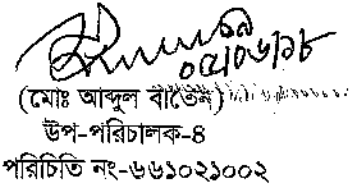 ০৫/০৬/১৮
(মোঃ আব্দুল বাতেন)
উপ-পরিচালক-৪
পরিচিতি নং-৬৬১০২১০০২